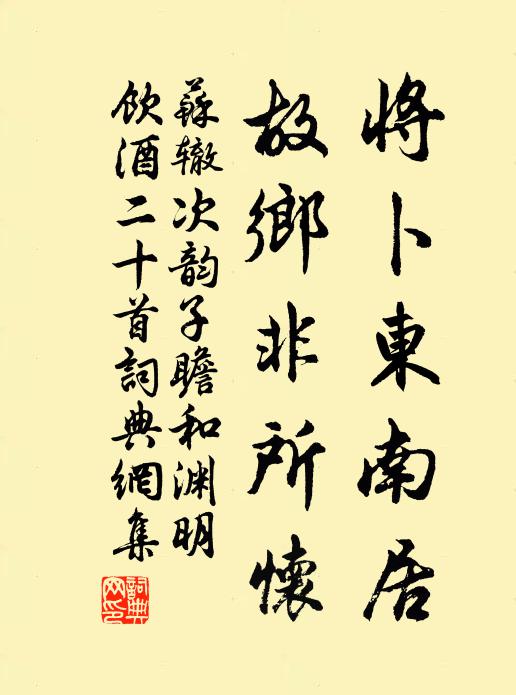 將卜東南居
故鄉非所懷
蘇辙次韵子瞻和渊明
飲酒二十首詞典網集
詞典網印